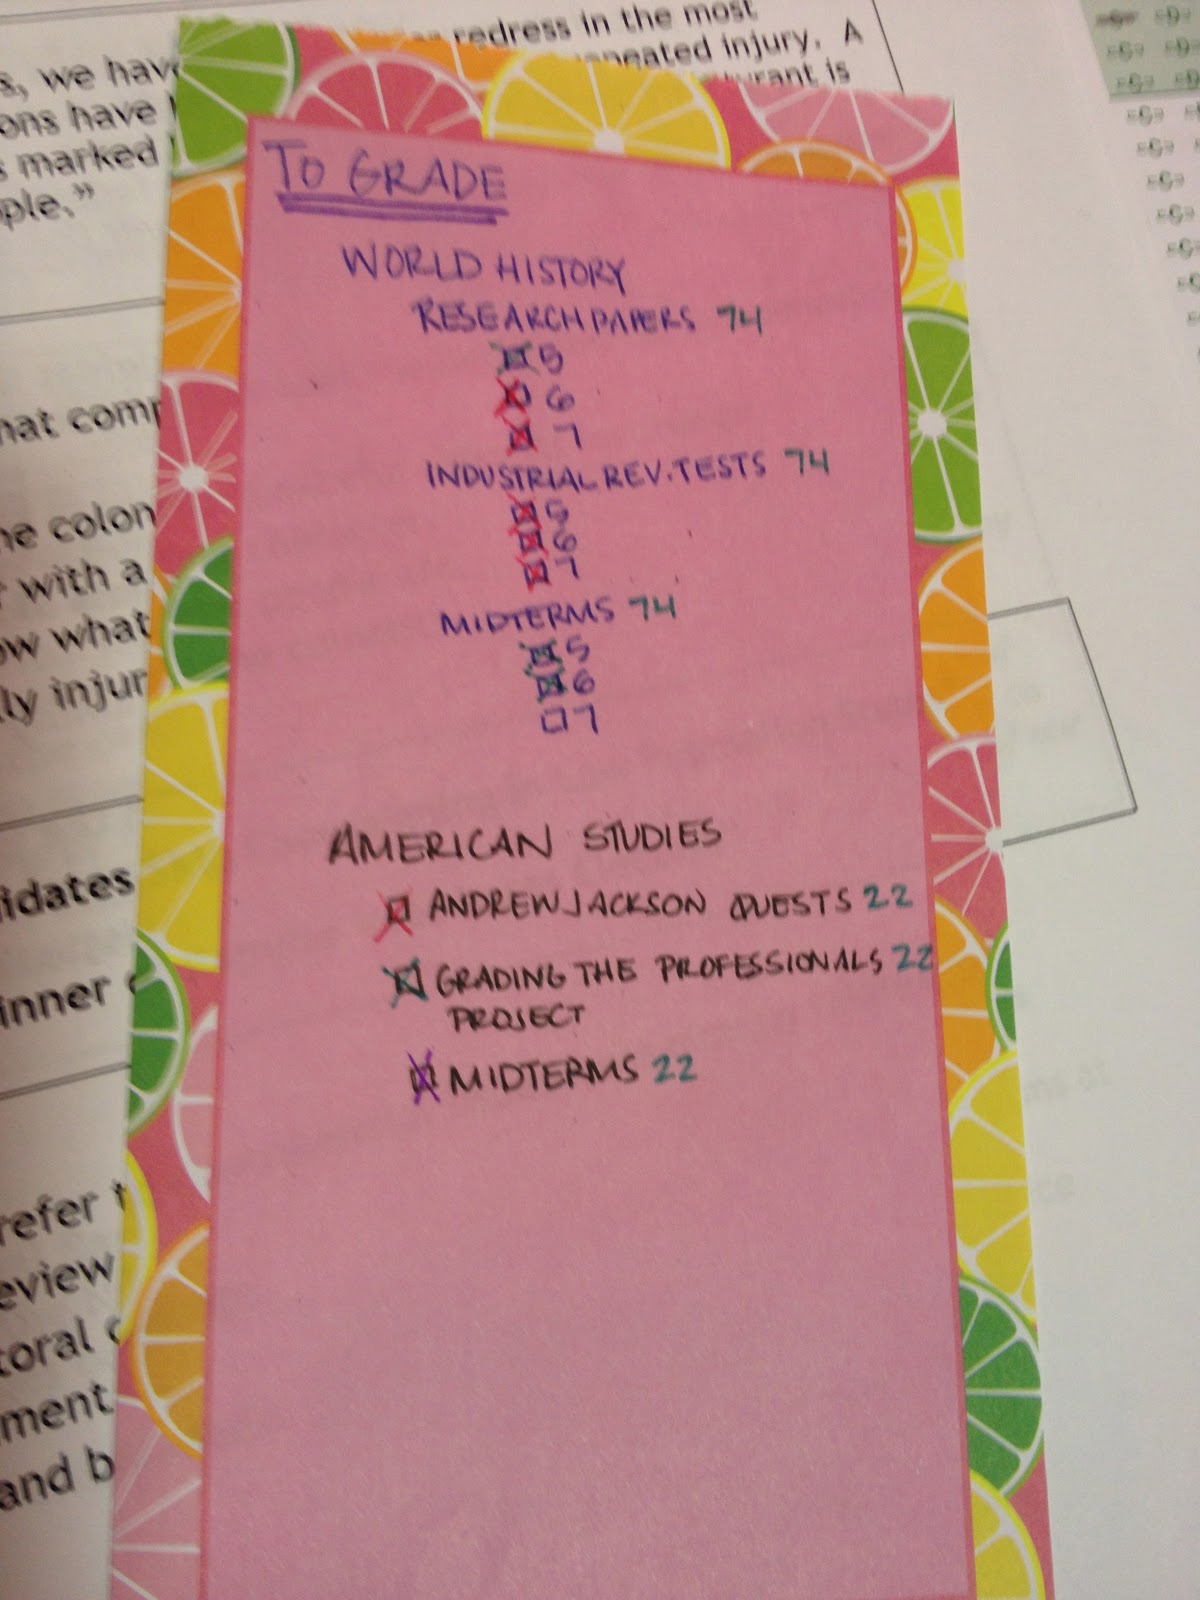 redress in the most
s, we have repeated injury. A
ons have
s marked is
ple.”
TO GRADE
WORLD HISTORY
RESEARCH PAPERS 74
5
6
7
INDUSTRIAL REV. TESTS 74
5
6
7
MIDTERMS 74
5
6
7
AMERICAN STUDIES
ANDREW JACKSON QUESTS 22
GRADING THE PROFESSIONALS 22
PROJECT
MIDTERMS 22
hat comp
he colon
with a
ow what
lly injur
idates
inner
refer t
eview
toral
ment
and b